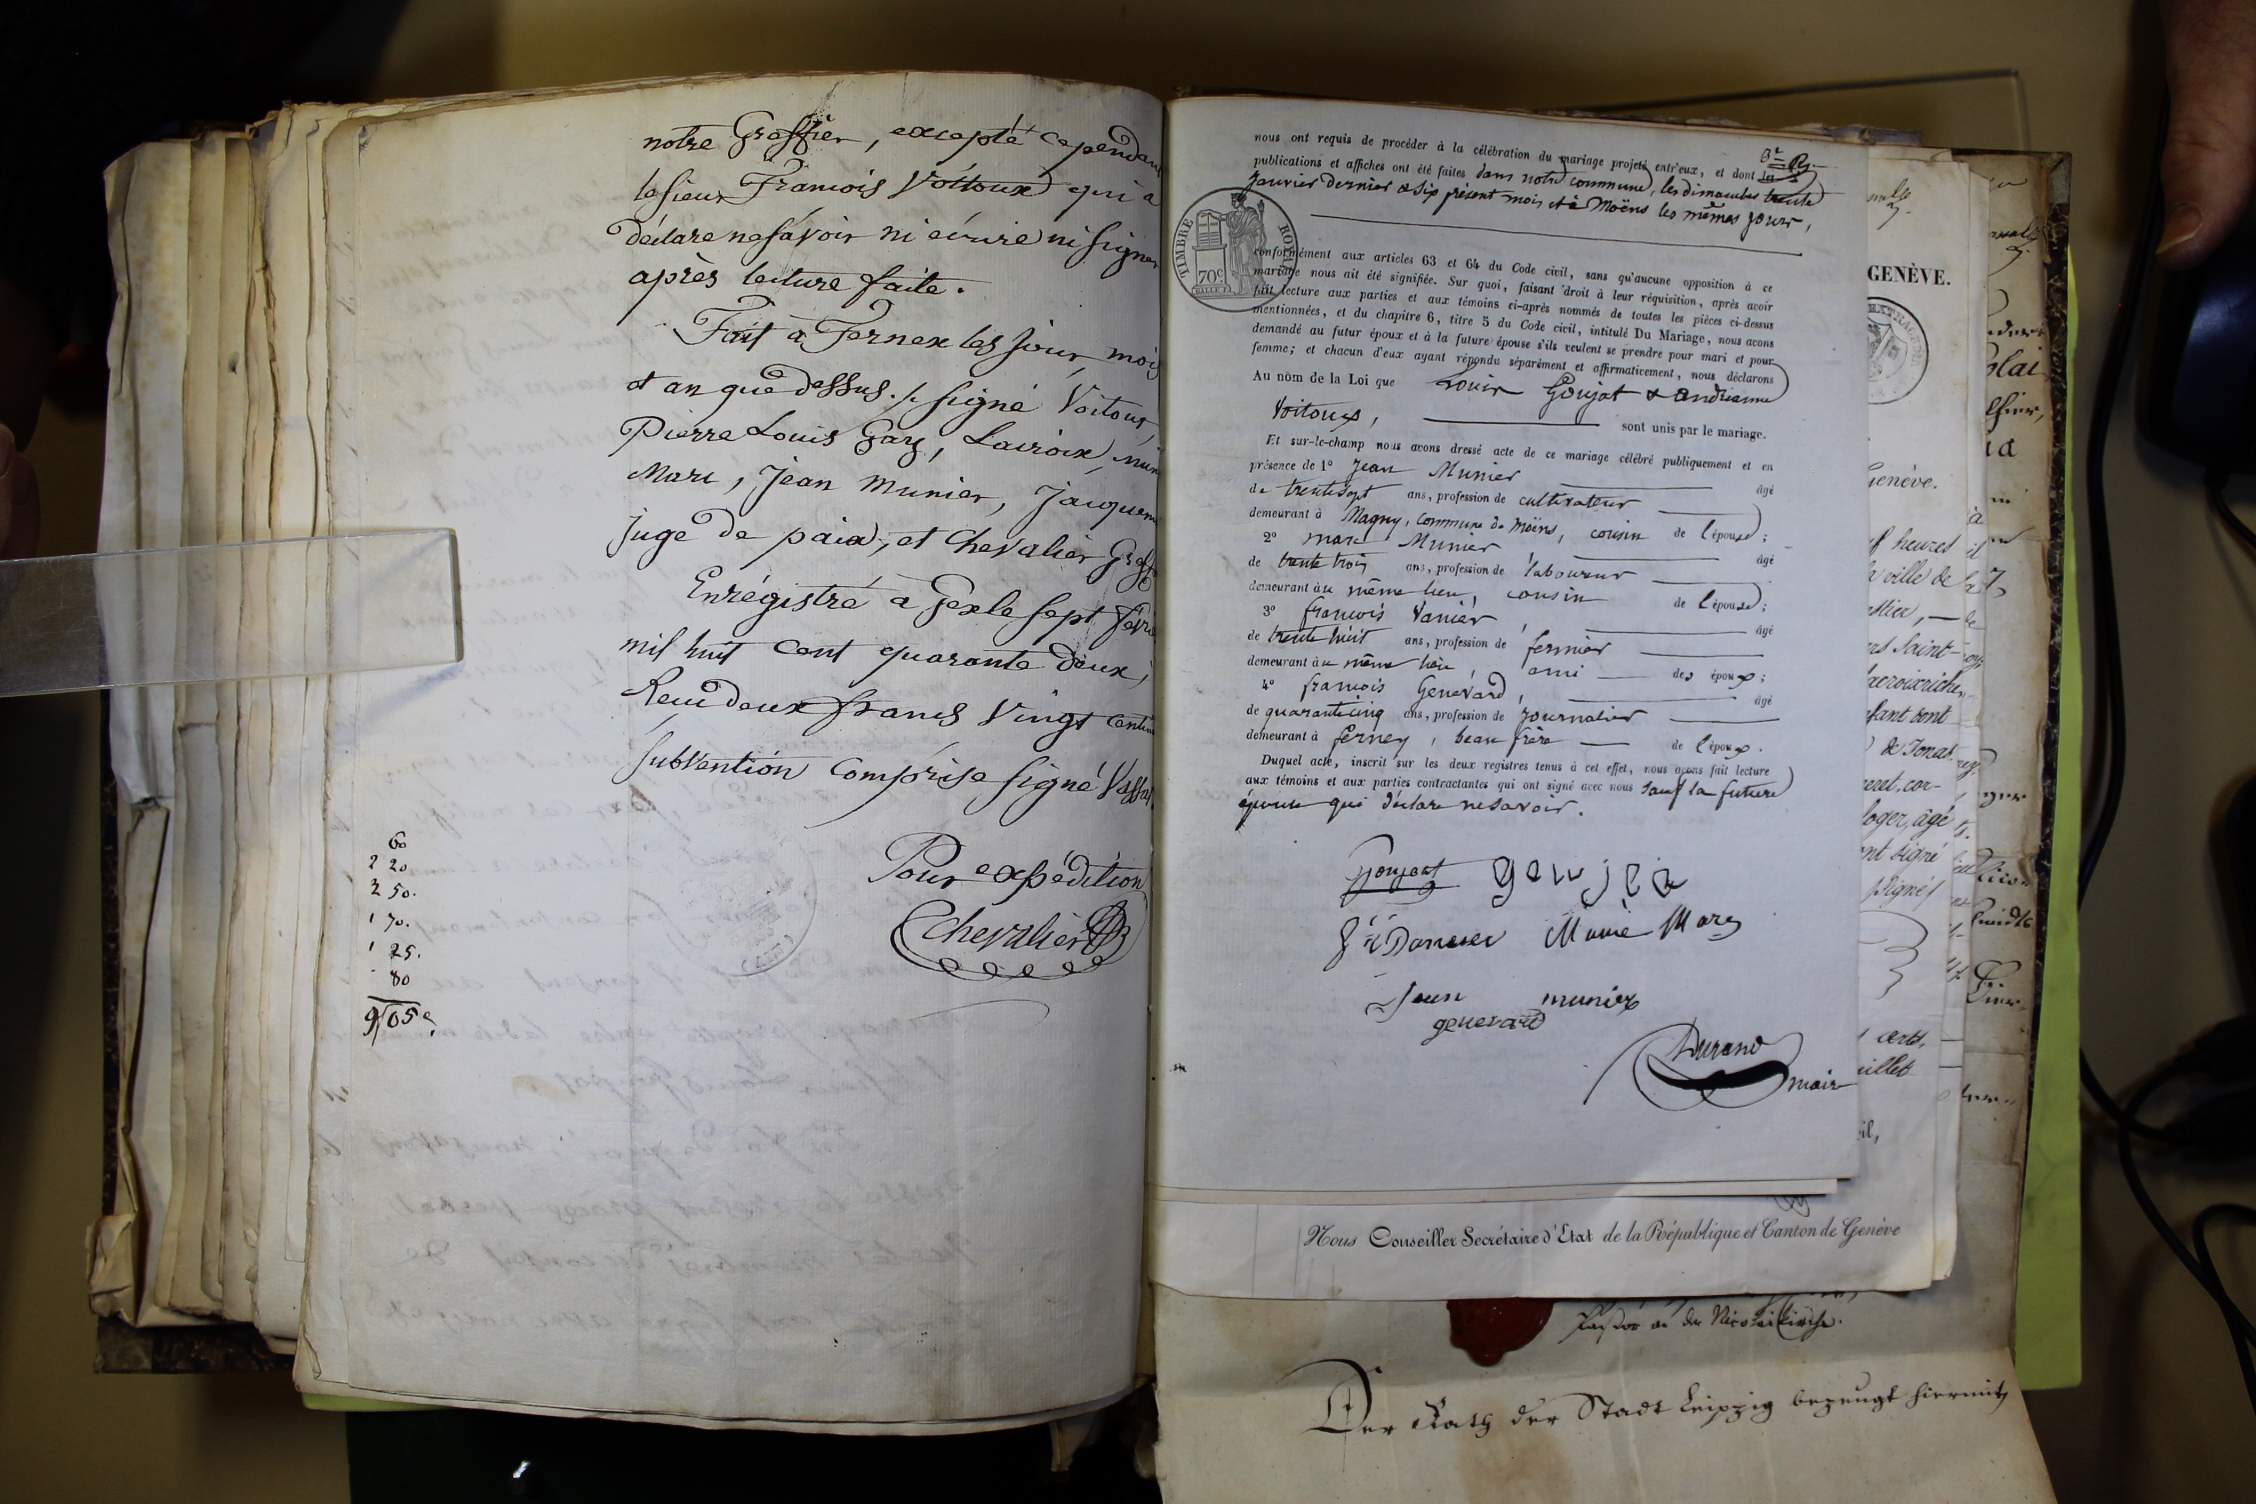 notre Greffier, excepté cependant
le sieur François Voitoux qui a
déclaré ne savoir ni écrire ni signer
après lecture faite.
Fait à Fernex les jour, mois
et an que dessus. signé Voitoux,
Pierre Louis Gay, Lacroix,
Marc, Jean Munier, Jacquem
juge de paix, et Chevalier Greff
Enrégistré à Gex le sept févri
mil huit cent quarante deux,
Reçu deux francs vingt centim
subvention comprise signé
60
2 20
2 50.
1 70.
1 25.
80
9 05 c.
Pour expédition
Chevalier
nous ont requis de procéder à la célébration du mariage projeté entr'eux, et dont les
publications et affiches ont été faites dans notre commune, les dimanches trente
janvier dernier & six présent mois et à Moëns les mêmes jours,
TIMBRE ROYAL
70c
conformément aux articles 63 et 64 du Code civil, sans qu'aucune opposition à ce
mariage nous ait été signifiée. Sur quoi, faisant droit à leur réquisition, après avoir
fait lecture aux parties et aux témoins ci-après nommés de toutes les pièces ci-dessus
mentionnées, et du chapitre 6, titre 5 du Code civil, intitulé Du Mariage, nous avons
demandé au futur époux et à la future épouse s'ils veulent se prendre pour mari et pour
femme; et chacun d'eux ayant répondu séparément et affirmativement, nous déclarons
Au nom de la Loi que Louis Goujat & andrienne
Voitoux, sont unis par le mariage.
Et sur-le-champ nous avons dressé acte de ce mariage célébré publiquement et en
présence de 1° Jean Munier âgé
de trente sept ans, profession de cultivateur
demeurant à Magny, commune de Moëns, cousin de l'épouse;
2° marc Munier âgé
de trente trois ans, profession de laboureur
demeurant au même lieu, cousin de l'épouse;
3° françois Vanier, âgé
de trente huit ans, profession de fermier
demeurant au même lieu, ami des époux;
4° françois Genevard, âgé
de quarante cinq ans, profession de journalier
demeurant à ferney, beau frère de l'époux.
Duquel acte, inscrit sur les deux registres tenus à cet effet, nous avons fait lecture
aux témoins et aux parties contractantes qui ont signé avec nous sauf la future
épouse qui déclare ne savoir.
Goujat
Munié Marc
Jean munier
genevard
Durand
maire
GENÈVE.
Genève.
heures
la ville de
Saint-
enfant dont
de Jonas
loger, âgé
ont signé
signés
Nous Conseiller Secrétaire d'Etat de la République et Canton de Genève
Pastor an der Nicolaikirche.
Der Rath der Stadt Leipzig bezeugt hiermit